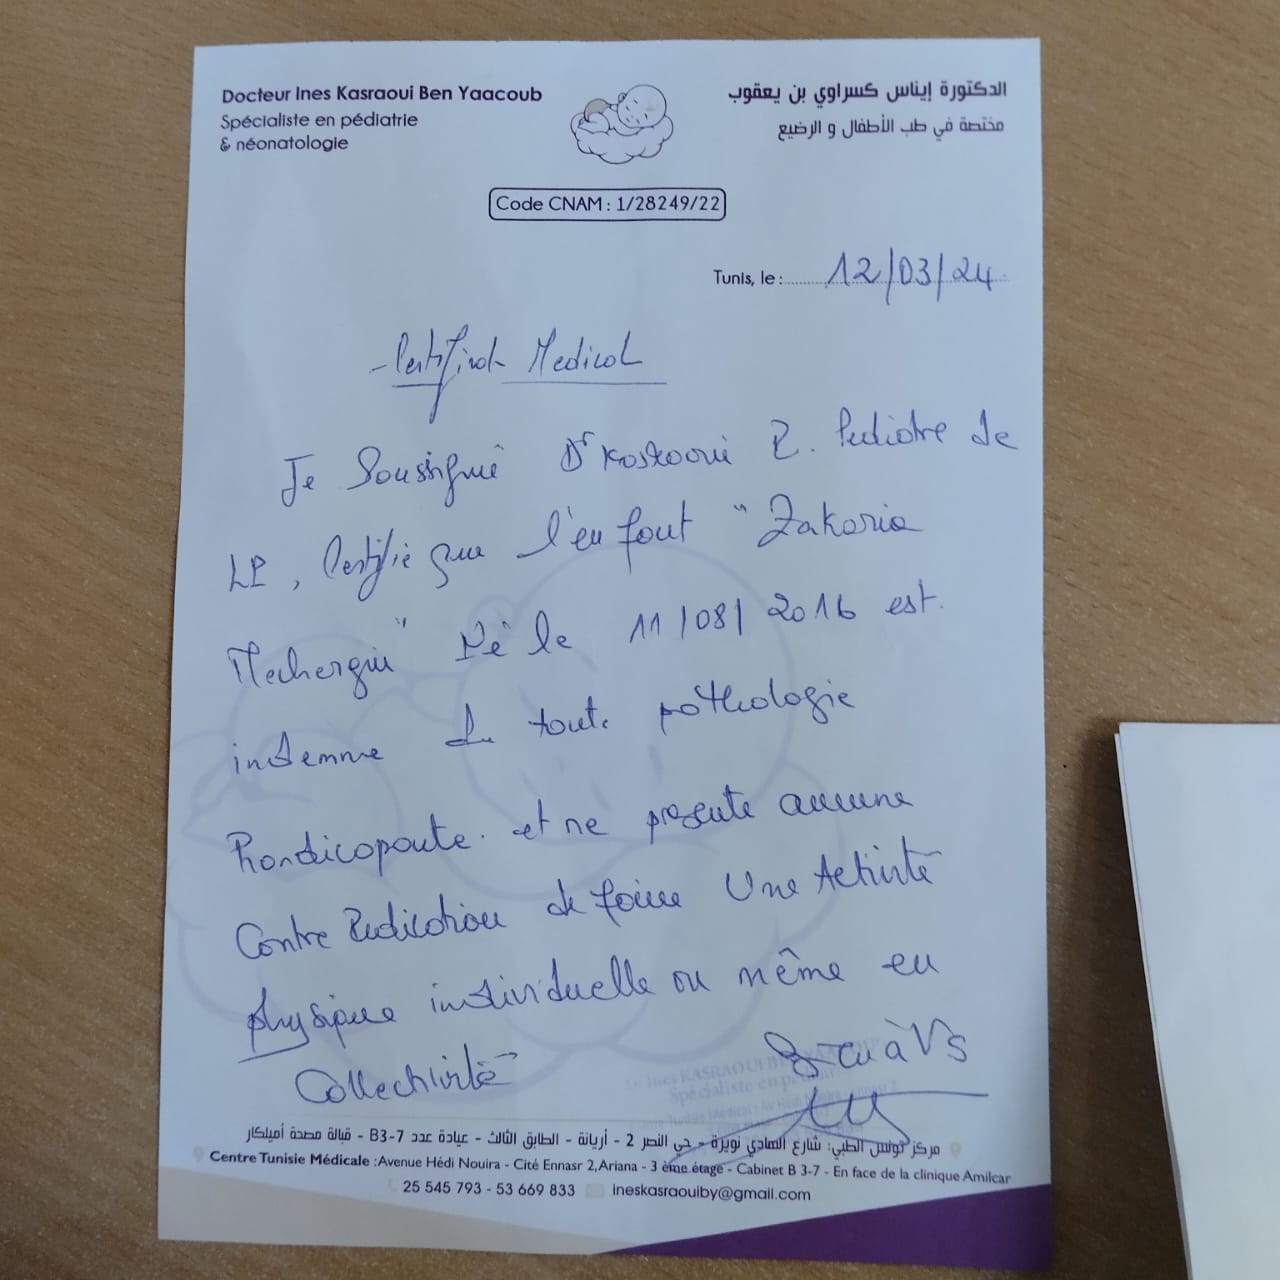 Docteur Ines Kasraoui Ben Yaacoub
Spécialiste en pédiatrie
& néonatologie
الدكتورة إيناس كسراوي بن يعقوب
مختصة في طب الأطفال و الرضيع
Code CNAM : 1/28249/22
Tunis, le : 12/03/24
Certificat Medical
Je Soussigné Dr Kasraoui Pediatre de
LP, Certifie que l'enfant "Zakaria
Mechergui" Né le 11/08/2016 est
indemne de toute pathologie
handicapante. et ne presente aucune
Contre Indication de faire Une Activité
physique individuelle ou même en
Collectivité
à Vs
Dr Ines KASRAOUI BEN YAACOUB
Spécialiste en pédiatrie
مركز تونس الطبي: شارع الهادي نويرة - حي النصر 2 - أريانة - الطابق الثالث - عيادة عدد B3-7 - قبالة مصحة أميلكار
Centre Tunisie Médicale :Avenue Hédi Nouira - Cité Ennasr 2,Ariana - 3 ème étage - Cabinet B 3-7 - En face de la clinique Amilcar
25 545 793 - 53 669 833 ineskasraouiby@gmail.com